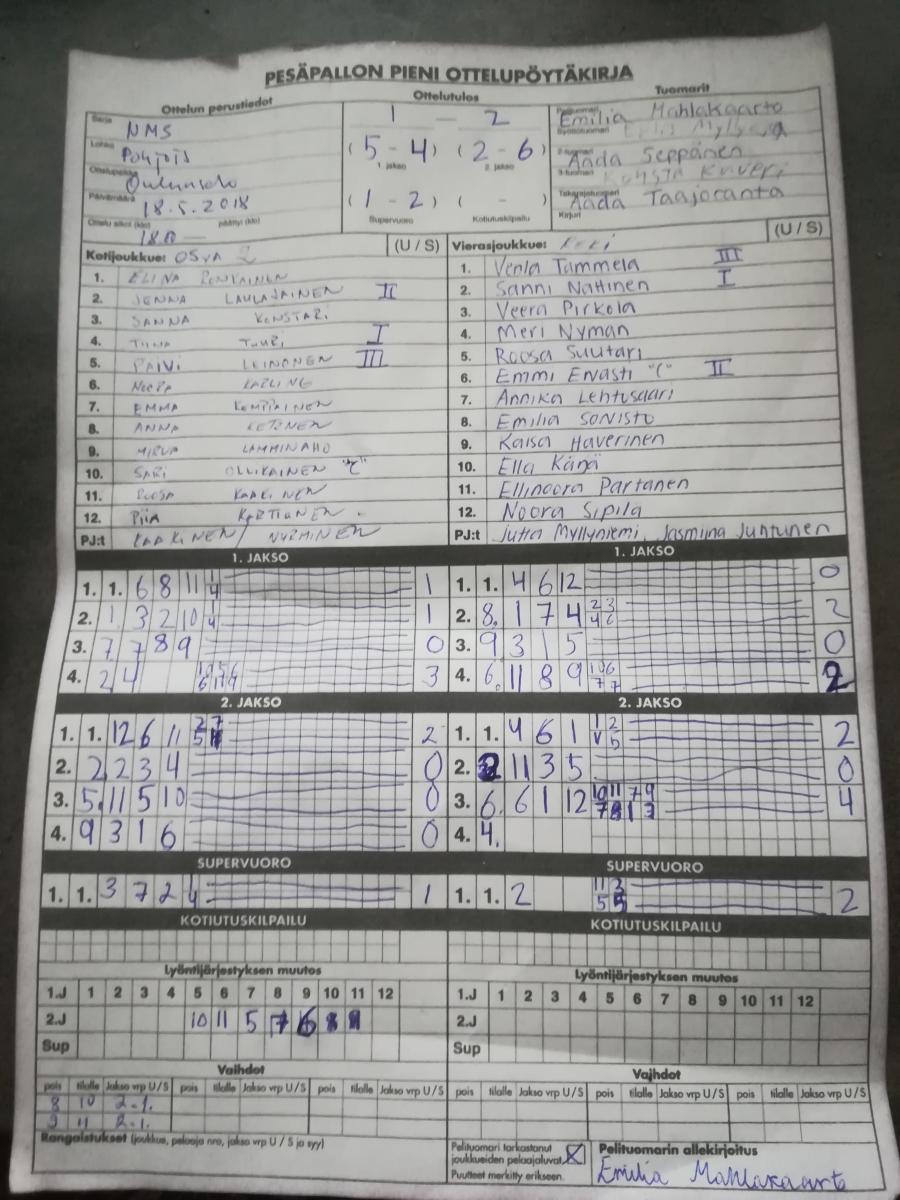 PESÄPALLON PIENI OTTELUPÖYTÄKIRJA
Ottelun perustiedot Ottelutulos Tuomarit
Sarja NMS
Lohko Pohjois
Ottelupaikka Oulunsalo
Päivämäärä 18.5.2018
Ottelu alkoi (klo) päättyi (klo)
1 - 2
(5 - 4) (2 - 6)
1. jakso 2. jakso
(1 - 2) ( - )
Supervuoro Kotiutuskilpailu
Pelituomari Emilia Mahlakaarto
Syöttötuomari
2-tuomari Aada Seppänen
3-tuomari
Takarajatuomari Aada Taajoranta
Kirjuri
Kotijoukkue: (U / S)
1. ELINA
2. JENNA LAULAJAINEN II
3. SANNA KONSTARI
4. TIINA TUURI I
5. PÄIVI LEINONEN III
6. NOORA KARLING
7. EMMA KEMPPAINEN
8. ANNA KETONEN
9. MIRVA LAMMINAHO
10. SARI OLLIKAINEN "C"
11. ROOSA KAAKINEN
12. PIIA KARTIUNEN
PJ:t KAAKINEN / NURMINEN
Vierasjoukkue: (U / S)
1. Venla Tammela III
2. Sanni Nättinen I
3. Veera Pirkola
4. Meri Nyman
5. Roosa Suutari
6. Emmi Ervasti "C" II
7. Annika Lehtosaari
8. Emilia Sonisto
9. Kaisa Haverinen
10. Ella Känä
11. Ellinoora Partanen
12. Noora Sipilä
PJ:t Jutta Myllyniemi, Jasmiina Juntunen
1. JAKSO 1. JAKSO
1. 1. 6 8 11 1 4 1 1. 1. 4 6 12 0
2. 1. 3 2 10 1 4 1 2. 8. 1 7 4 2 3 4 6 2
3. 7 7 8 9 0 3. 9 3 1 5 0
4. 2 4 3 4. 6. 11 8 9 2
2. JAKSO 2. JAKSO
1. 1. 12 6 11 2 1. 1. 4 6 1 2
2. 2 2 3 4 0 2. 11 3 5 0
3. 5. 11 5 10 0 3. 6. 6 1 12 4
4. 9 3 1 6 0 4. 4.
SUPERVUORO SUPERVUORO
1. 1. 3 7 2 1 1. 1. 2 2
KOTIUTUSKILPAILU KOTIUTUSKILPAILU
Lyöntijärjestyksen muutos Lyöntijärjestyksen muutos
1.J 1 2 3 4 5 6 7 8 9 10 11 12 1.J 1 2 3 4 5 6 7 8 9 10 11 12
2.J 10 11 5 7 6 2.J
Sup Sup
Vaihdot Vaihdot
pois tilalle Jakso vrp U / S pois tilalle Jakso vrp U / S pois tilalle Jakso vrp U / S pois tilalle Jakso vrp U / S pois tilalle Jakso vrp U / S pois tilalle Jakso vrp U / S
8 10 2-1.
9 11 2-1.
Rangaistukset (joukkue, pelaaja nro, jakso vrp U / S ja syy)
Pelituomari tarkastanut
joukkueiden pelaajaluvat
Puutteet merkitty erikseen.
Pelituomarin allekirjoitus
Emilia Mahlakaarto